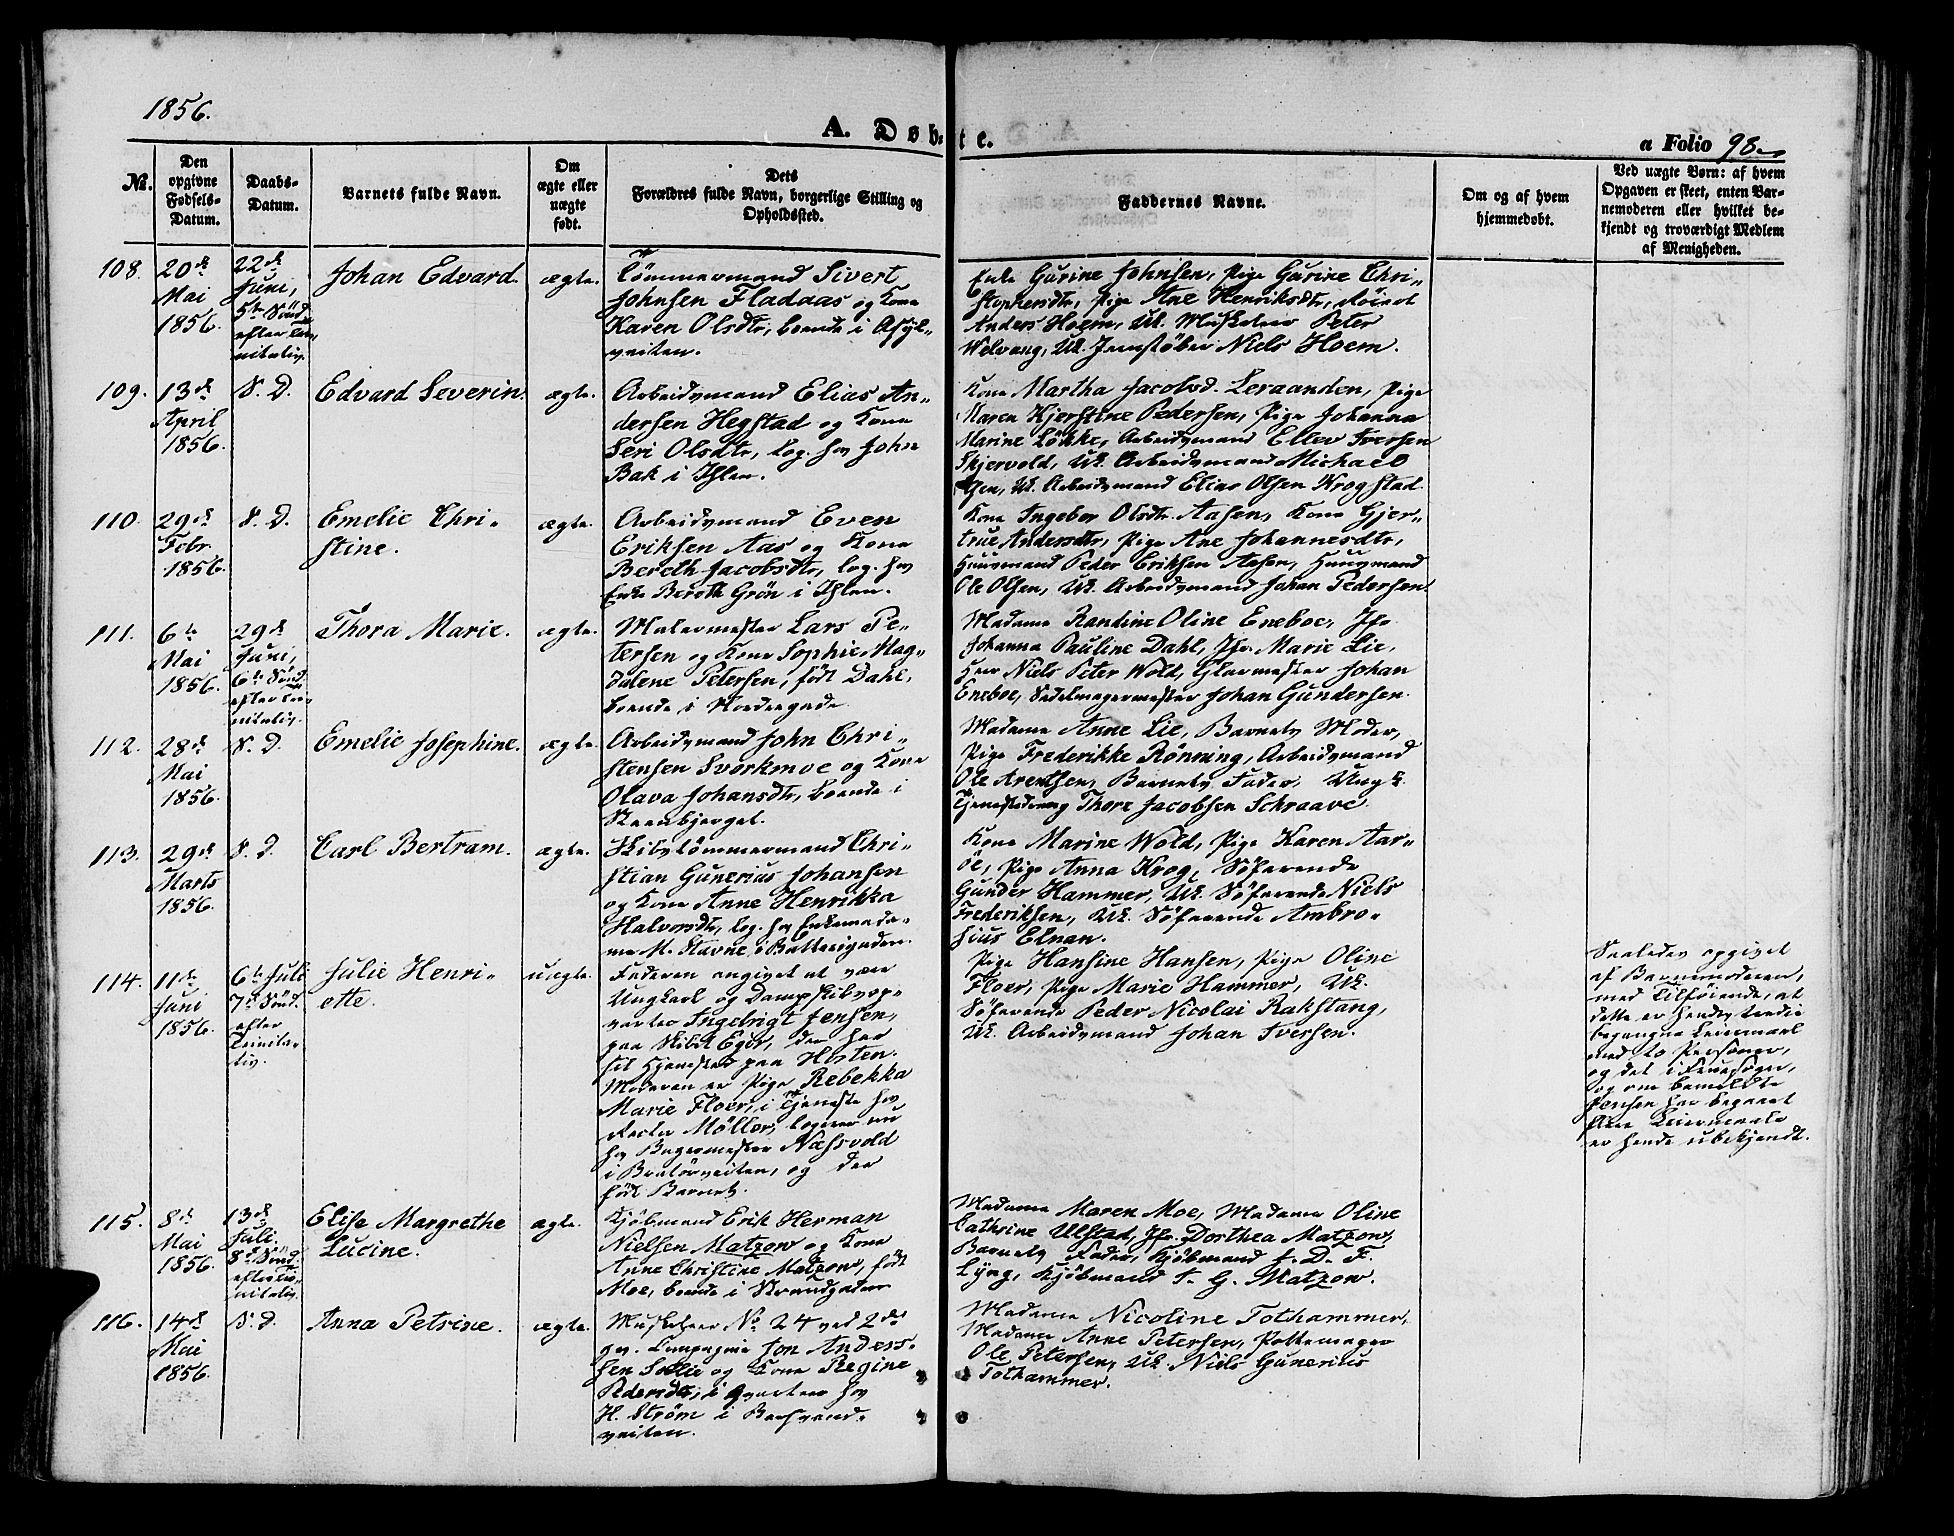 1856.
A. Døbte.
a Folio 98.
No.
Den
opgivne
Fødsels-
Datum.
Daabs-
Datum.
Barnets fulde Navn.
Om
ægte eller
uægte
født.
Dets
Forældres fulde Navn, borgerlige Stilling og
Opholdssted.
Faddernes Navne.
Om og af hvem
hjemmedøbt.
Ved uægte Børn: af hvem
Opgaven er skeet, enten Bar-
nemoderen eller hvilket be-
kjendt og troværdigt Medlem
af Menigheden.
108.
20de
Mai
1856.
22de
Juni,
5te Sönd.
efter Tri-
nitatis.
Johan Edvard.
ægte.
Tömmermand Sivert
Johnsen Fladaas og Kone
Karen Olsdtr, boende i Asyl-
veiten.
Enke Gurine Johnsen, Pige Gurine Chri-
stophersdtr, Pige Ane Henriksdtr,
Anders Hoem, Uk. Musketeer Peter
Welvang, Uk. Jernstøber Niels Hoem.
109.
13de
April
1856.
S. D.
Edvard Severin.
ægte.
Arbeidsmand Elias An-
dersen Hegstad og Kone
Seri Olsdtr, log. hos John
Bak i Ihlen.
Kone Martha Jacobsd. Leraanden, Pige
Maren Kjerstine Pedersen, Pige Johanna
Marine Løkke, Arbeidsmand Ellev Iversen
Skjervold, Uk. Arbeidsmand Michael
Olsen, Uk. Arbeidsmand Elias Olsen Krogstad
110.
29de
Febr.
1856.
S. D.
Emelie Chri-
stine.
ægte.
Arbeidsmand Even
Eriksen Aas og Kone
Bereth Jacobsdtr, log. hos
Enke Bereth Grön i Ihlen.
Kone Ingebor Olsdtr. Aasen, Kone Gjer-
true Andersdtr, Pige Ane Johannesdtr,
Huusmand Peder Eriksen Aasen, Huusmand
Ole Olsen, Uk. Arbeidsmand Johan Pedersen.
111.
6te
Mai
1856.
29de
Juni,
6te Sönd.
efter Tri-
nitatis.
Thora Marie.
ægte.
Malermester Lars Pe-
tersen og Kone Sophie Mag-
dalene Petersen, født Dahl,
boende i Nordregade.
Madame Randine Oline Eneboe, Jfr.
Johanna Pauline Dahl, Jfr. Marie Lie,
Herr Niels Peter Wold, Glarmester Johan
Eneboe, Sadelmagermester Johan Gundersen.
112.
28de
Mai
1856.
S. D.
Emelie Josephine.
ægte.
Arbeidsmand John Chri-
stensen Svorkmoe og Kone
Olava Johansdtr, boende i
Steenbjerget.
Madame Anne Lie, Barnets Moder,
Pige Frederikke Rönning, Arbeidsmand
Ole Arentsen, Barnets Fader, Ungk.
Tjenestedreng Thore Jacobsen Schraave.
113.
29de
Marts
1856.
S. D.
Carl Bertram.
ægte.
Skibstömmermand Chri-
stian Gunerius Johansen
og Kone Anne Henrikka
Halvorsdtr, log. hos Enkemada-
me M. Stavne i Batterigaden.
Kone Marine Wold, Pige Karen Aar-
öe, Pige Anna Krog, Söfarende
Gunder Hammer, Uk. Söfarende Niels
Frederiksen, Uk. Söfarende Ambro-
sius Elnan.
114.
11te
Juni
1856.
6te Juli
7de Sönd.
efter
Trinita-
tis.
Julie Henri-
ette.
uægte.
Faderen angivet at være
Ungkarl og Dampskibsop-
varter Ingebrigt Jensen,
paa Skibet Eger, der har
sit Hjemsted paa Horten.
Moderen er Pige Rebekka
Marie Floer, i Tjeneste hos
Rector Möller, logerer nu
hos Bagermester Næssvold
i Bratörveiten, og der
født Barnet.
Pige Hansine Hansen, Pige Oline
Floer, Pige Marie Hammer, Uk.
Söfarende Peder Nicolai Rakstang,
Uk. Arbeidsmand Johan Iversen.
Saaledes opgivet
af Barnemoderen,
med Tilföiende, at
dette er hendes tredie
begangne Leiermaal
med to Personer,
og det i Faresogn,
og om bemeldte
Jensen har begaaet
flere Leiermaale
er hende ubekjendt.
115.
8de
Mai
1856.
13de
Juli.
8de Sönd.
efter Tri-
nitatis.
Elise Margrethe
Lucine.
ægte.
Kjöbmand Erik Herman
Nielsen Matzow og Kone
Anne Christine Matzow, født
Moe, boende i Strandgaden
Madame Maren Moe, Madame Oline
Cathrine Ulstad, Jfr. Dorthea Matzow,
Barnets Fader, Kjöbmand J. D. F.
Lyng, Kjöbmand T. G. Matzow.
116.
14de
Mai
1856.
S. D.
Anna Petrine.
ægte.
Musketeer No 24 ved 2det
gev. Compagnie Jon Anders-
sen Sollie og Kone Regine
Pedersdtr, i Qvarteer hos
H. Ström i Bersvend-
veiten.
Madame Nicoline Tothammer,
Madame Anne Petersen, Pottemager
Ole Petersen, Uk. Niels Gunerius
Tothammer.